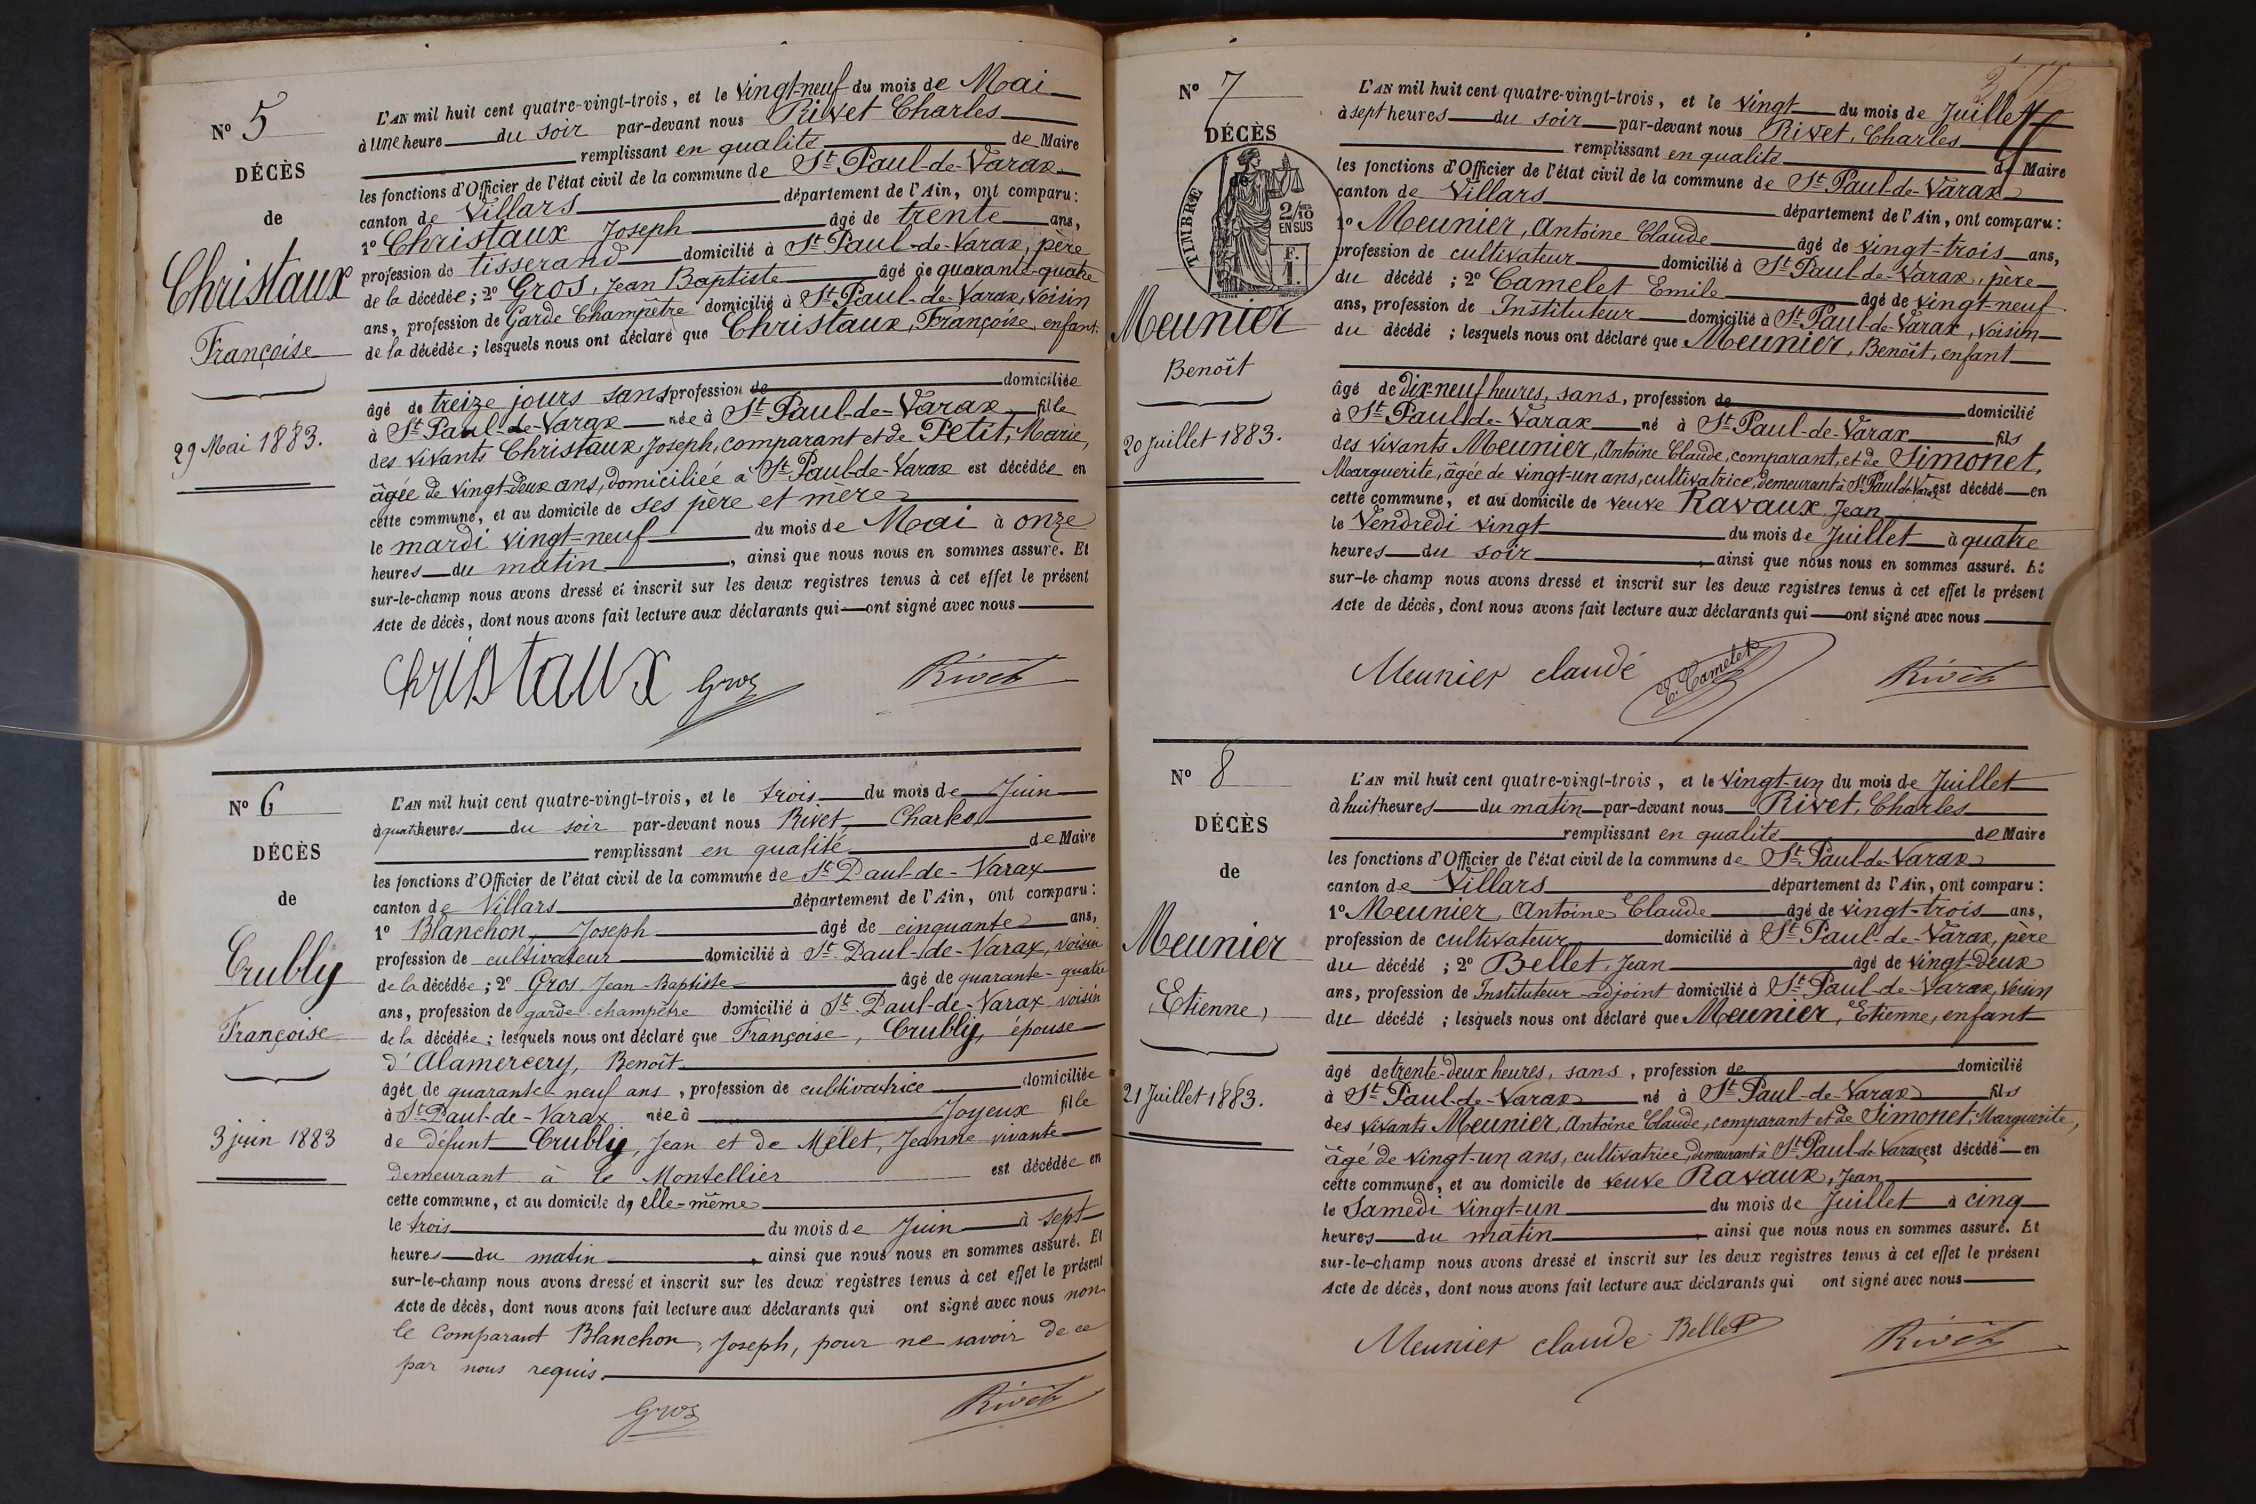 Nº 5
DÉCÈS
de
Christaux
Françoise
29 Mai 1883.
L'AN mil huit cent quatre-vingt-trois, et le vingt-neuf du mois de Mai
à une heure du soir par-devant nous Rivet Charles
remplissant en qualité de Maire
les fonctions d'Officier de l'état civil de la commune de St Paul-de-Varax
canton de Villars département de l'Ain, ont comparu :
1º Christaux Joseph âgé de trente ans,
profession de tisserand domicilié à St Paul-de-Varax, père
de la décédée ; 2º Gros, Jean Baptiste âgé de quarante-quatre
ans, profession de Garde Champêtre domicilié à St Paul-de-Varax, voisin
de la décédée ; lesquels nous ont déclaré que Christaux, Françoise, enfant
âgé de treize jours sans profession de domiciliée
à St Paul-de-Varax née à St Paul-de-Varax fille
des vivants Christaux, Joseph, comparant et de Petit, Marie,
âgée de vingt-deux ans, domiciliée à St Paul-de-Varax est décédée en
cette commune, et au domicile de ses père et mère
le mardi vingt-neuf du mois de Mai à onze
heures du matin, ainsi que nous nous en sommes assuré. Et
sur-le-champ nous avons dressé et inscrit sur les deux registres tenus à cet effet le présent
Acte de décès, dont nous avons fait lecture aux déclarants qui ont signé avec nous
Christaux Gros Rivet
Nº 6
DÉCÈS
de
Crubly
Françoise
3 juin 1883
L'AN mil huit cent quatre-vingt-trois, et le trois du mois de Juin
à quatre heures du soir par-devant nous Rivet Charles
remplissant en qualité de Maire
les fonctions d'Officier de l'état civil de la commune de St Paul-de-Varax
canton de Villars département de l'Ain, ont comparu :
1º Blanchon Joseph âgé de cinquante ans,
profession de cultivateur domicilié à St Paul-de-Varax, voisin
de la décédée ; 2º Gros Jean-Baptiste âgé de quarante-quatre
ans, profession de garde-champêtre domicilié à St Paul-de-Varax voisin
de la décédée ; lesquels nous ont déclaré que Françoise, Crubly, épouse
d'Alamercery, Benoît
âgée de quarante-neuf ans, profession de cultivatrice domiciliée
à St Paul-de-Varax née à Joyeux fille
de défunt Crubly, Jean et de Mélet, Jeanne vivante
demeurant à le Montellier est décédée en
cette commune, et au domicile d'elle-même
le trois du mois de Juin à sept
heures du matin, ainsi que nous nous en sommes assuré. Et
sur-le-champ nous avons dressé et inscrit sur les deux registres tenus à cet effet le présent
Acte de décès, dont nous avons fait lecture aux déclarants qui ont signé avec nous non
le comparant Blanchon, Joseph, pour ne savoir de ce
par nous requis.
Gros Rivet
Nº 7
DÉCÈS
de
TIMBRE
2/10
EN SUS
F.
1.
Meunier
Benoît
20 juillet 1883.
L'AN mil huit cent quatre-vingt-trois, et le vingt du mois de Juillet
à sept heures du soir par-devant nous Rivet, Charles
remplissant en qualité de Maire
les fonctions d'Officier de l'état civil de la commune de St Paul-de-Varax
canton de Villars département de l'Ain, ont comparu :
1º Meunier, Antoine Claude âgé de vingt-trois ans,
profession de cultivateur domicilié à St Paul-de-Varax, père
du décédé ; 2º Camelet Emile âgé de vingt-neuf
ans, profession de Instituteur domicilié à St Paul-de-Varax, voisin
du décédé ; lesquels nous ont déclaré que Meunier, Benoît, enfant
âgé de dix-neuf heures, sans, profession de domicilié
à St Paul-de-Varax né à St Paul-de-Varax fils
des vivants Meunier, Antoine Claude, comparant, et de Simonet,
Marguerite, âgée de vingt-un ans, cultivatrice, demeurant à St Paul-de-Varax est décédé en
cette commune, et au domicile de veuve Ravaux, Jean
le Vendredi vingt du mois de Juillet à quatre
heures du soir, ainsi que nous nous en sommes assuré. Et
sur-le-champ nous avons dressé et inscrit sur les deux registres tenus à cet effet le présent
Acte de décès, dont nous avons fait lecture aux déclarants qui ont signé avec nous
Meunier claude E. Camelet Rivet
Nº 8
DÉCÈS
de
Meunier
Etienne
21 Juillet 1883.
L'AN mil huit cent quatre-vingt-trois, et le vingt-un du mois de Juillet
à huit heures du matin par-devant nous Rivet, Charles
remplissant en qualité de Maire
les fonctions d'Officier de l'état civil de la commune de St Paul-de-Varax
canton de Villars département de l'Ain, ont comparu :
1º Meunier, Antoine Claude âgé de vingt-trois ans,
profession de cultivateur domicilié à St Paul-de-Varax, père
du décédé ; 2º Bellet, Jean âgé de vingt-deux
ans, profession de Instituteur-adjoint domicilié à St Paul-de-Varax, voisin
du décédé ; lesquels nous ont déclaré que Meunier, Etienne, enfant
âgé de trente-deux heures, sans, profession de domicilié
à St Paul-de-Varax né à St Paul-de-Varax fils
des vivants Meunier, Antoine Claude, comparant et de Simonet, Marguerite,
âgé de vingt-un ans, cultivatrice, demeurant à St Paul-de-Varax est décédé en
cette commune, et au domicile de veuve Ravaux, Jean
le Samedi vingt-un du mois de Juillet à cinq
heures du matin, ainsi que nous nous en sommes assuré. Et
sur-le-champ nous avons dressé et inscrit sur les deux registres tenus à cet effet le présent
Acte de décès, dont nous avons fait lecture aux déclarants qui ont signé avec nous
Meunier claude Bellet Rivet